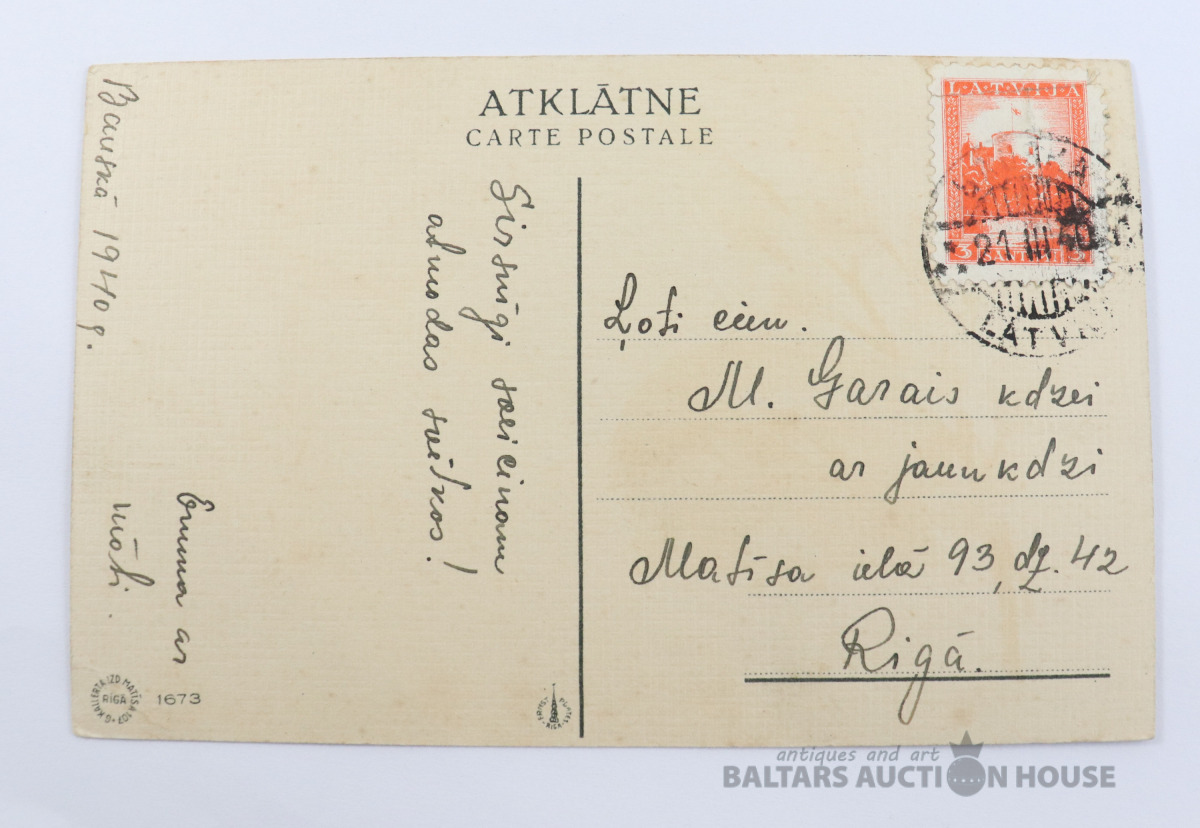 ATKLĀTNE
CARTE POSTALE
LATVIJA
21 III 40
LATVI
Bauskā 1940 g.
Sirsnīgi sveicinam
atmodas svētkos!
Emma ar
māti.
Ļoti cien.
M. Garais kdzei
ar jaunkdzi
Matīsa ielā 93, dz. 42
Rīgā.
RĪGA
1673
antiques and art
BALTARS AUCTION HOUSE